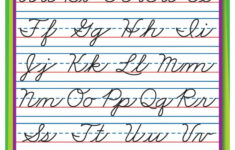 Ff Gg Hh Ii
Jj Kk Ll Mm
Nn Oo Pp Qq Rr
Ss Tt Uu Vv